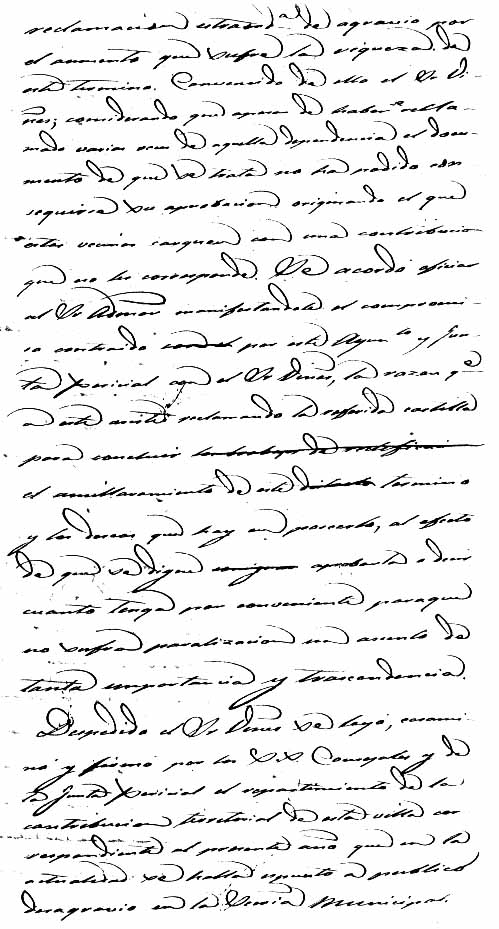 reclamacion de agravio por
el aumento que sufre la riqueza de
este termino. Convencido de ello el Sr Vi-
ñes; considerando que apesar de haberse recla-
mado varias veces de aquella dependencia el docu-
mento de que se trata no ha podido con
seguirse su aprobacion originando el que
estos vecinos carguen con una contribucion
que no les corresponde. Se acordó oficiar
al Sr Admor manifestandole el compromi-
so contraido por este Aynto y Jun-
ta Pericial con el Sr Viñes, la razon qe
a este asiste reclamando la referida cartilla
para concluir los trabajos de
el amillaramiento de este termino
y los deseos que hay en poseerla, al efecto
de que se digne aprobarla o decir
cuanto tenga por conveniente paraque
no sufra paralizacion un asunto de
tanta importancia y trascendencia.
Despedido el Sr Viñes se leyó, exami-
nó y firmó por los S.S. Concejales y de
la Junta Pericial el repartimiento de la
contribucion territorial de esta villa cor
respondiente al presente año que en la
actualidad se halla espuesto al publico
desagravio en la Secria Municipal.